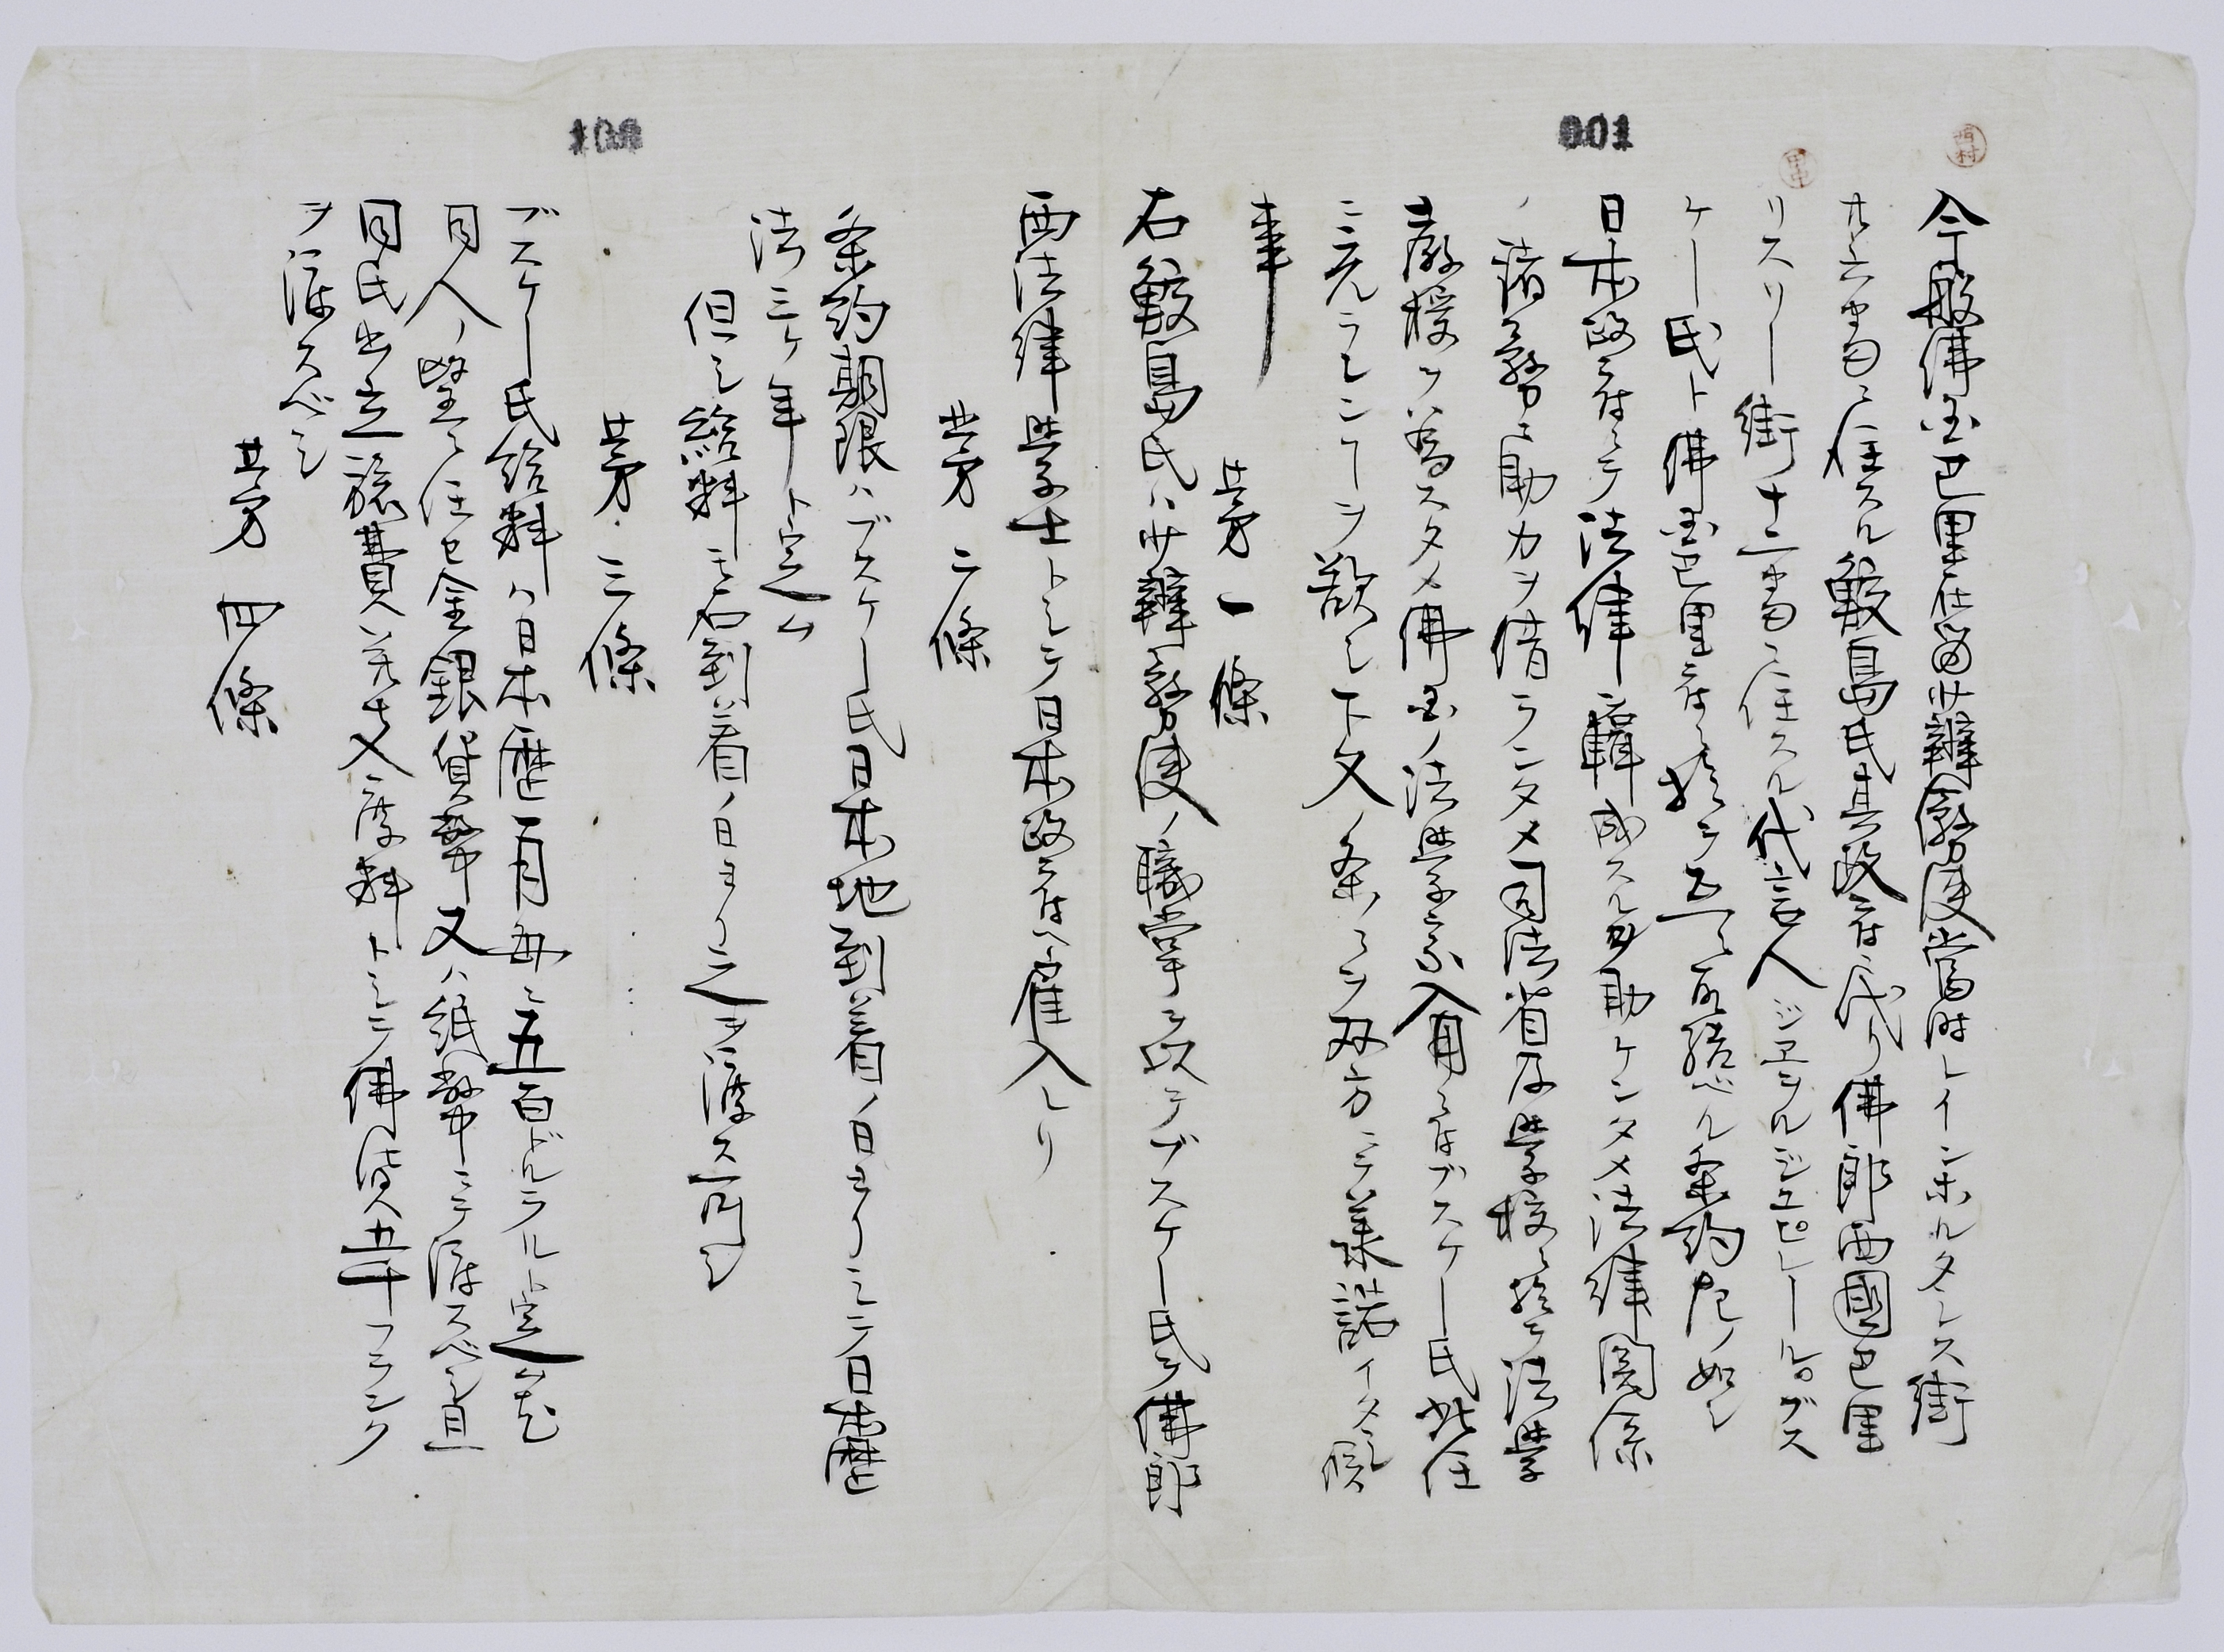 001
西村
田中
今般佛国巴里在留少辨務使當時レインホルタンス街
廿六番ニ住スル鮫島氏其政府ニ代リ佛郎西國巴里
リスリー街十二番ニ住スル代言人ジヨウルジユピレールブス
ケー氏ト佛国巴里府ニ於テ互ニ取結ベル条約左ノ如シ
日本政府ニテ法律編成スルヲ助ケンタメ法律関係
ノ諸務ニ助力ヲ借ランタメ司法省及学校ニ於テ法学
ノ教授ヲ為スタメ佛国ノ法学家入用ニ付ブスケー氏此任
ニ充ラレンヿヲ欲シ下文ノ条々ヲ双方ニテ承諾イタシ候
事
其第一條
右鮫島氏ハ少辨務使ノ職掌ヲ以テブスケー氏ヲ佛郎
西法律学士トシテ日本政府ヘ雇入レリ
其第二條
条約期限ハブスケー氏日本地到着ノ日ヨリシテ日本歴
法三ケ年ト定ム
但シ給料モ右到着ノ日ヨリ之ヲ渡ス可シ
其第三條
ブスケー氏給料ハ日本歴一月毎ニ五百ドルラルト定ム尤
同人ノ望ニ任セ金銀貨幣又ハ紙幣ニテ渡スベシ且
同氏出立旅費並支度料トシテ佛貨五千フランク
ヲ渡スベシ
其第四條